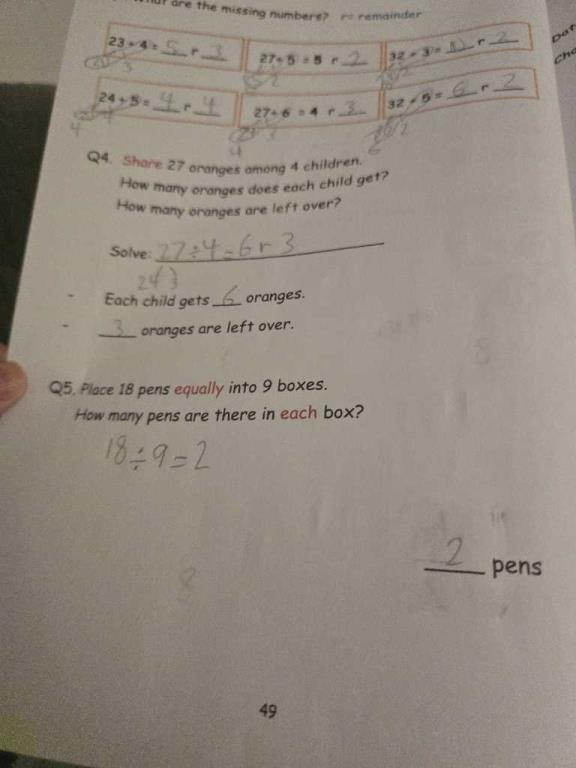 are the missing numbers? r= remainder
23 ÷ 4 = 5 r 3
27 ÷ 5 = 5 r 2
32 ÷ 3 = 10 r 2
24 ÷ 5 = 4 r 4
27 ÷ 6 = 4 r 3
32 ÷ 5 = 6 r 2
4
4
6
Q4. Share 27 oranges among 4 children.
How many oranges does each child get?
How many oranges are left over?
Solve: 27÷4=6 r 3
24 3
- Each child gets 6 oranges.
- 3 oranges are left over.
Q5. Place 18 pens equally into 9 boxes.
How many pens are there in each box?
18÷9=2
2 pens
8
49